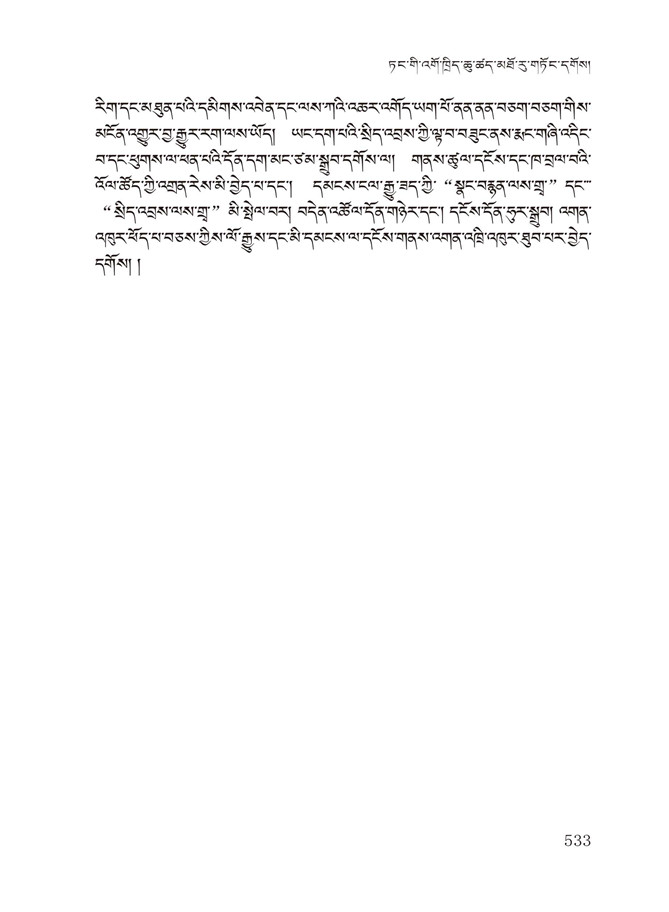 ཏང་གི་འགོ་ཁྲིད་ཆུ་ཚད་མཐོ་རུ་གཏོང་དགོས།
རིག་དང་མཐུན་པའི་དམིགས་འབེན་དང་ལས་ཀའི་འཆར་འགོད་ཡག་པོ་ནན་ནན་བཅག་བཅག་གིས་
མངོན་འགྱུར་བྱ་རྒྱུར་རག་ལས་ཡོད། ཡང་དག་པའི་སྲིད་འབྲས་ཀྱི་ལྟ་བ་བཟུང་ནས་རྨང་གཞི་འདིང་
བ་དང་ཕུགས་ལ་ཕན་པའི་དོན་དག་མང་ཙམ་སྒྲུབ་དགོས་ལ། གནས་ཚུལ་དངོས་དང་ཁ་བྲལ་བའི་
འོལ་ཚོད་ཀྱི་འགྲན་རེས་མི་བྱེད་པ་དང་། དམངས་ངལ་རྒྱུ་ཟད་ཀྱི་ “སྣང་བརྙན་ལས་གྲྭ” དང་
“སྲིད་འབྲས་ལས་གྲྭ” མི་སྤེལ་བར། བདེན་འཚོལ་དོན་གཉེར་དང་། དངོས་དོན་ཧུར་སྒྲུབ། འགན་
འཁུར་ཕོད་པ་བཅས་ཀྱིས་ལོ་རྒྱུས་དང་མི་དམངས་ལ་དངོས་གནས་འགན་འཁྲི་འཁུར་ཐུབ་པར་བྱེད་
དགོས། །
533